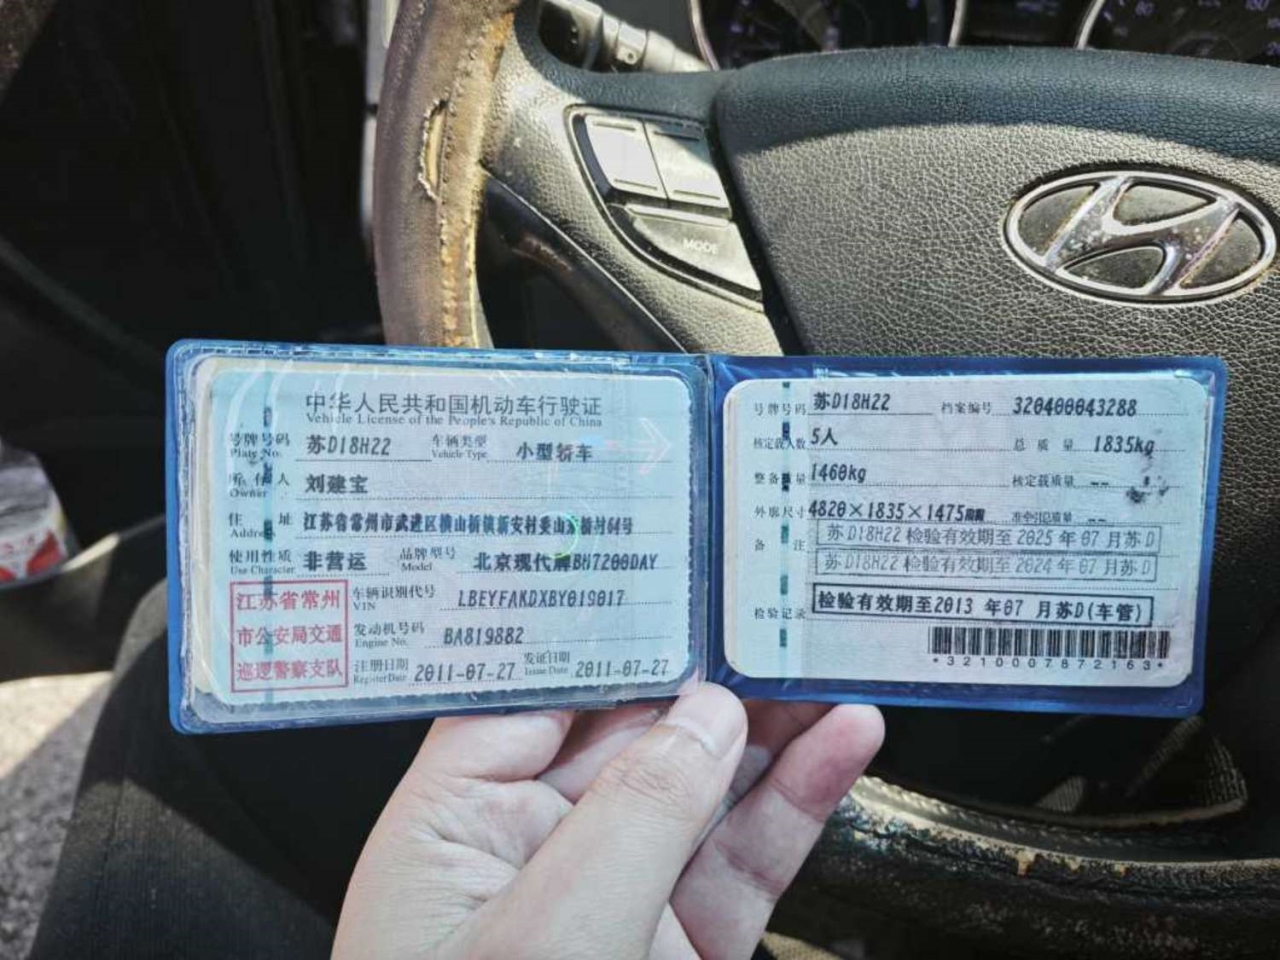 MODE
中华人民共和国机动车行驶证
Vehicle License of the People's Republic of China
号牌号码 苏D18H22 车辆类型 小型轿车
Plate No. Vehicle Type
所有人 刘建宝
Owner
住址 江苏省常州市武进区横山桥镇新安村
Address
使用性质 非营运 品牌型号 北京现代牌BH7200DAY
Use Character Model
江苏省常州
市公安局交通
巡逻警察支队
车辆识别代号 LBEYFAKDXBY019017
VIN
发动机号码 BA819882
Engine No.
注册日期 2011-07-27 发证日期 2011-07-27
Register Date Issue Date
号牌号码 苏D18H22 档案编号 320400043288
核定载人数 5人 总质量 1835kg
整备质量 1460kg 核定载质量 --
外廓尺寸 4820×1835×1475mm 准牵引总质量 --
备注 苏D18H22 检验有效期至2025年07月苏D
苏D18H22 检验有效期至2024年07月苏D
检验记录 检验有效期至2013年07月苏D(车管)
*3210007872163*